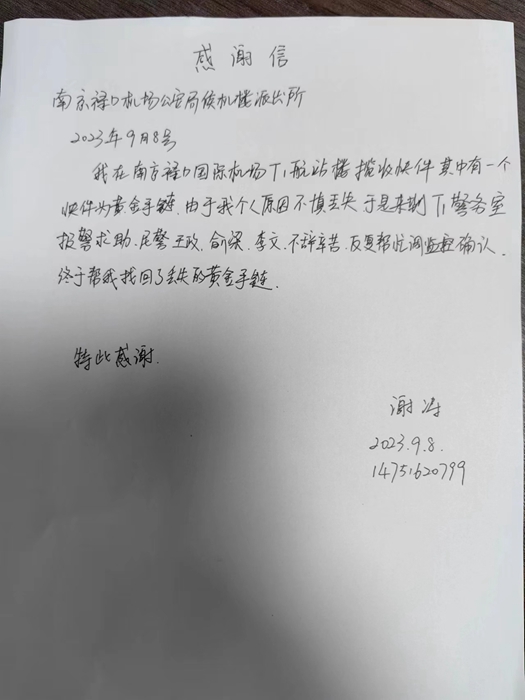 感谢信
南京禄口机场公安局候机楼派出所
2023年9月8号
我在南京禄口国际机场T1航站楼揽收快件其中有一个
快件为黄金手链.由于我个人原因不慎丢失于是来到T1警务室
报警求助.民警王政.俞梁.李文.不辞辛苦.反复帮忙调监控确认.
终于帮我找回了丢失的黄金手链.
特此感谢.
谢
2023.9.8.
14751620799